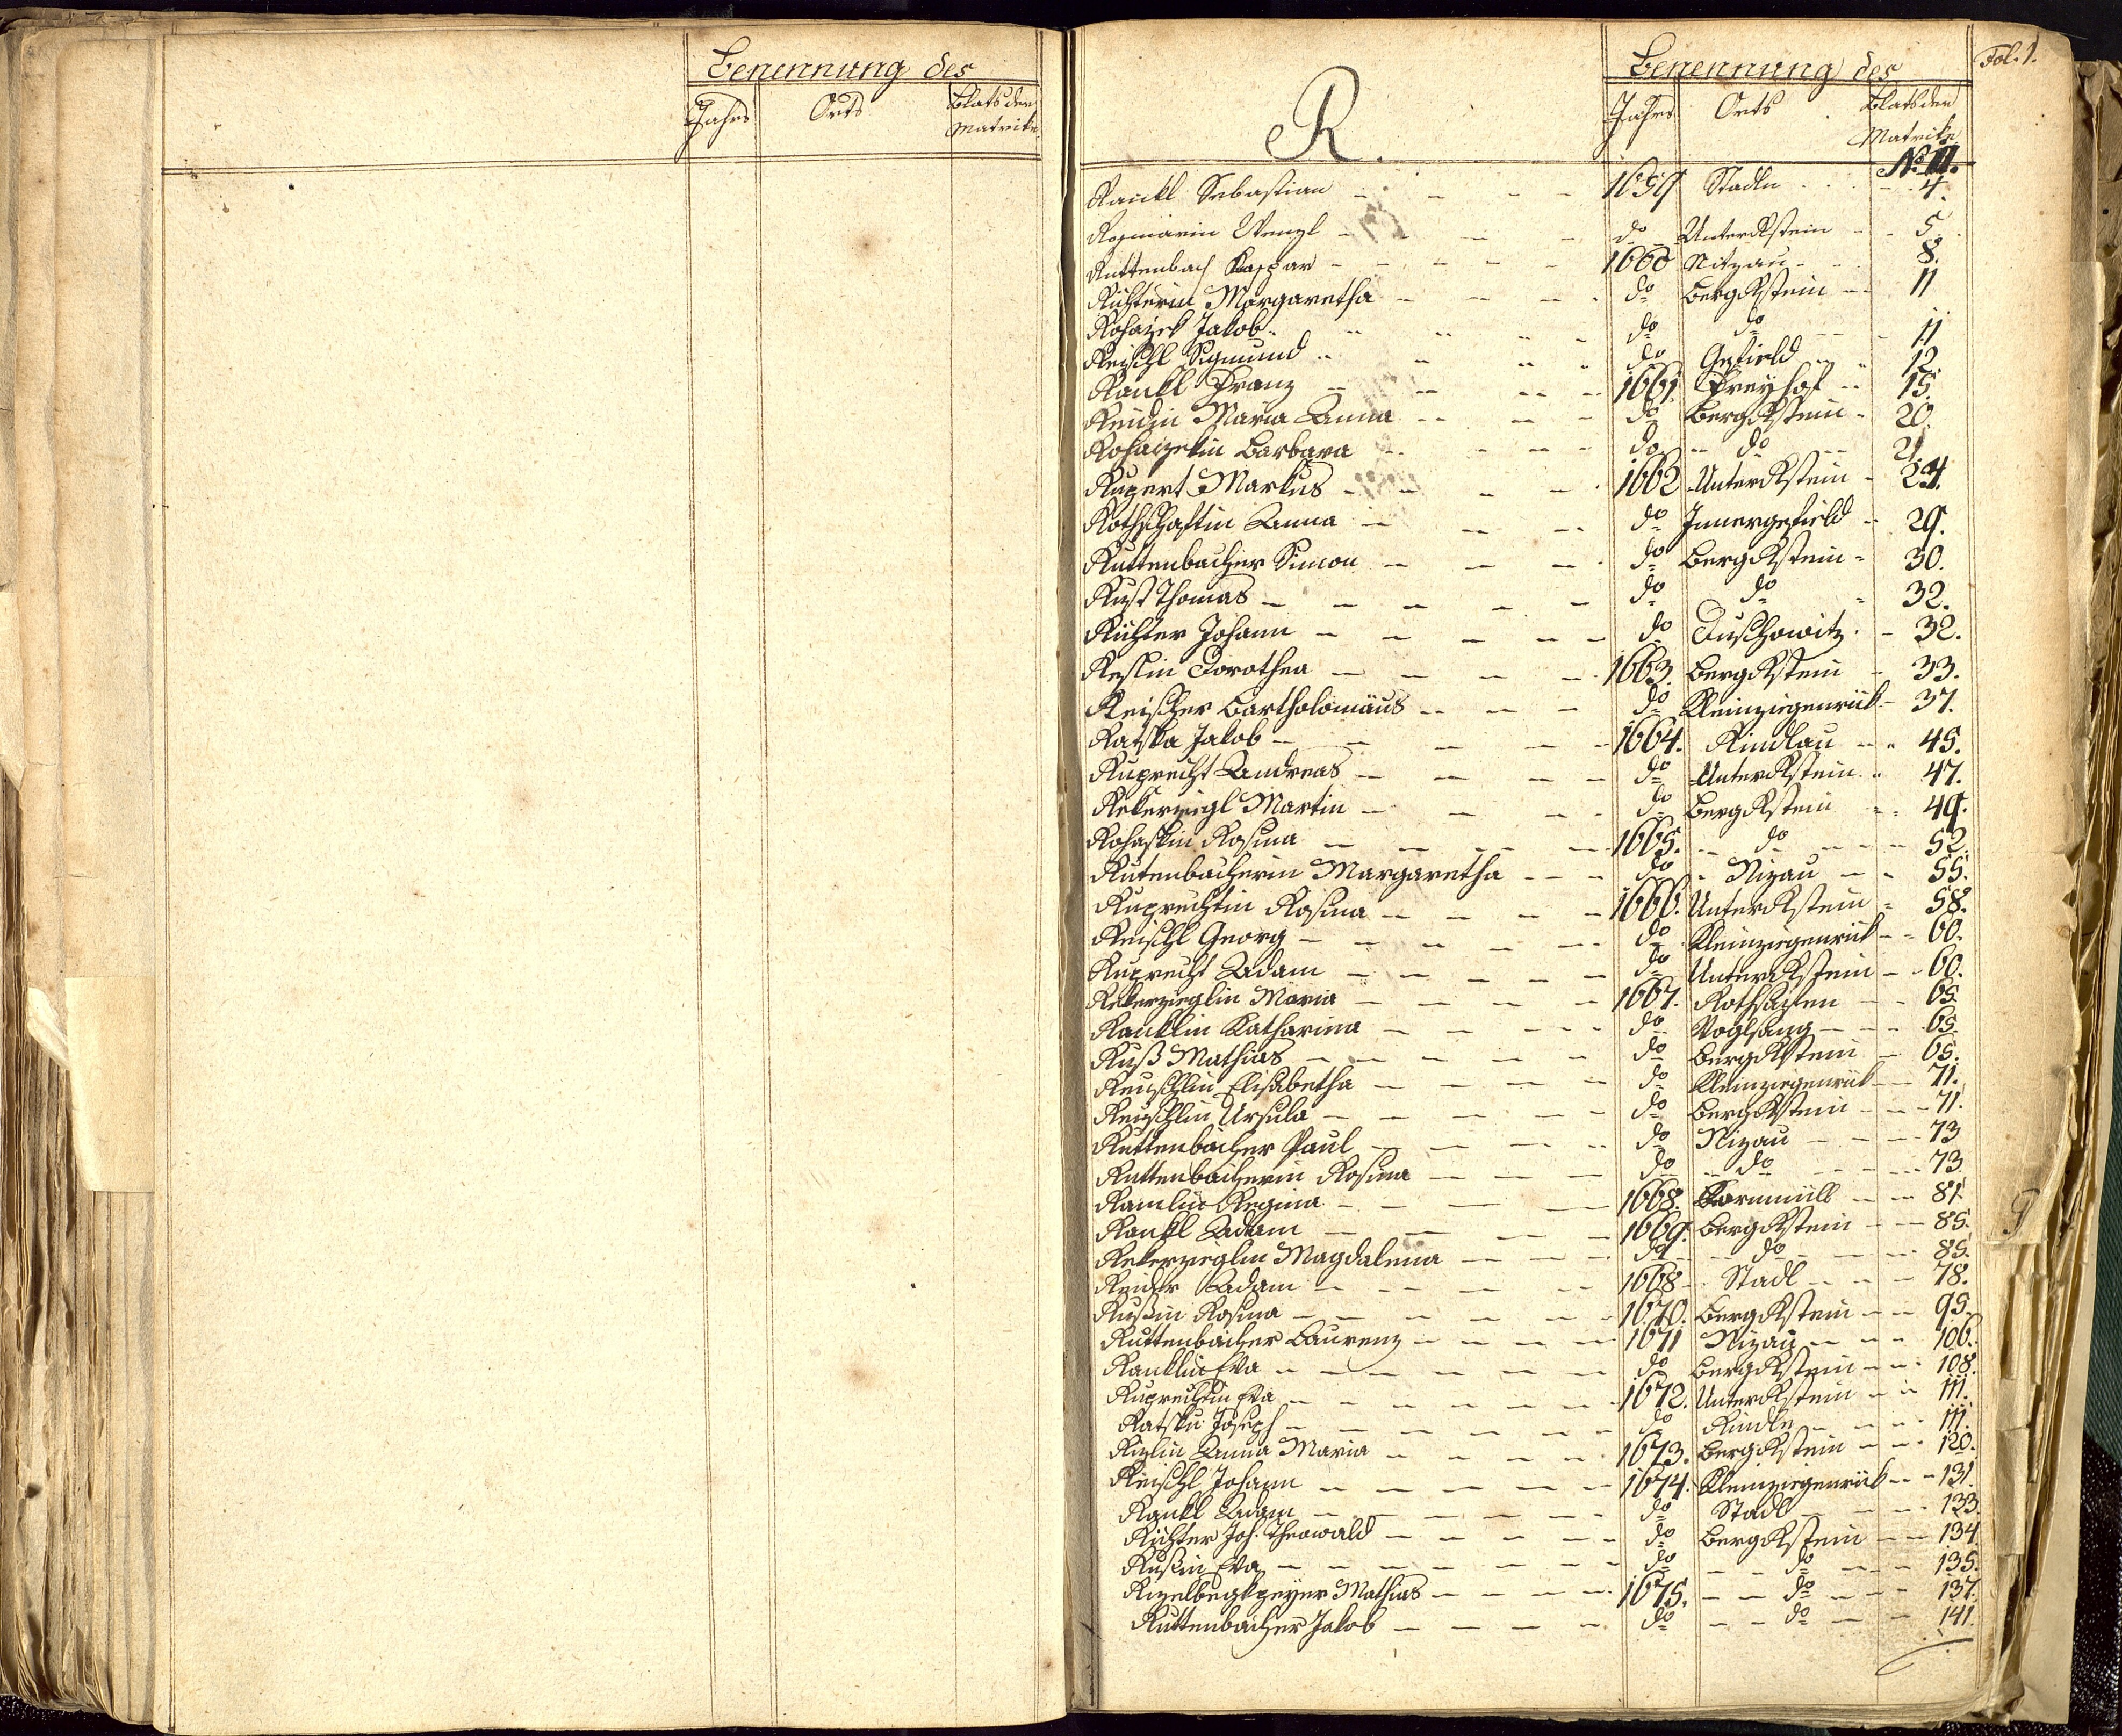 Benennung des
Jahrs Orts Blats der Matrike
Fol. 1.
R.
Benennung des
Jahrs Orts Blats der Matrike
No. II.
Rankl Sebastian 1659 Stadln 4.
Rosmarin Wenzl do Unterkstein 5.
Ruttenbach Kaspar 1660 Nitzau 8.
Richterin Margaretha do Bergkstein 11
Rohazek Jakob do do 11
Reischl Sigmund do Gefield 12.
Rankl Franz 1661. Freyhof 15.
Reidin Maria Anna do Bergkstein 20.
Rohazekin Barbara do do 21.
Rupert Markus 1662 Unterkstein 24.
Rothschaftin Anna do Innergefield 29.
Ruttenbacher Simon do Bergkstein 30.
Rust Thomas do do 32.
Richter Johann do Duschowitz 32.
Reslin Dorothea 1663. Bergkstein 33.
Reischer Bartholomäus do Kleinziegenrük 37.
Ratska Jakob 1664. Rindlau 45.
Ruprecht Andreas do Unterkstein 47.
Rekerziegl Martin do Bergkstein 49.
Rohaskin Rosina 1665. do 52.
Rutenbacherin Margaretha do Nizau 55.
Ruprechtin Rosina 1666. Unterkstein 58.
Reischl Georg do Kleinziegenrük 60.
Ruprecht Adam do Unterkstein 60.
Rekerzieglin Maria 1667. Rothsaifen 65.
Ranklin Katharina do Voglsang 65.
Ruß Mathias do Bergkstein 65.
Reuschlin Elisabetha do Kleinziegenrük 71.
Reuschlin Ursula do Bergkstein 71.
Ruttenbacher Paul do Nizau 73
Ruttenbacherin Rosina do do 73.
Ramlin Regina 1668. Kornmüll 81.
Rankl Adam 1669. Bergkstein 85.
Rekerzieglin Magdalena do do 85.
Reider Adam 1668 Stadl 78.
Rußin Rosina 1670. Bergkstein 95.
Ruttenbacher Laurenz 1671 Nizau 106.
Ranklin Eva do Bergkstein 108.
Ruprechtin Eva 1672. Unterkstein 111.
Ratsku Joseph do Rindle 111.
Rizlin Anna Maria 1673. Bergkstein 120.
Reischl Johann 1674. Kleinziegenrük 131.
Rankl Adam do Stadl 133.
Richter Joh. Theowald do Bergkstein 134.
Rußin Eva do do 135.
Mathias 1675. do 137.
Ruttenbacher Jakob do do 141.